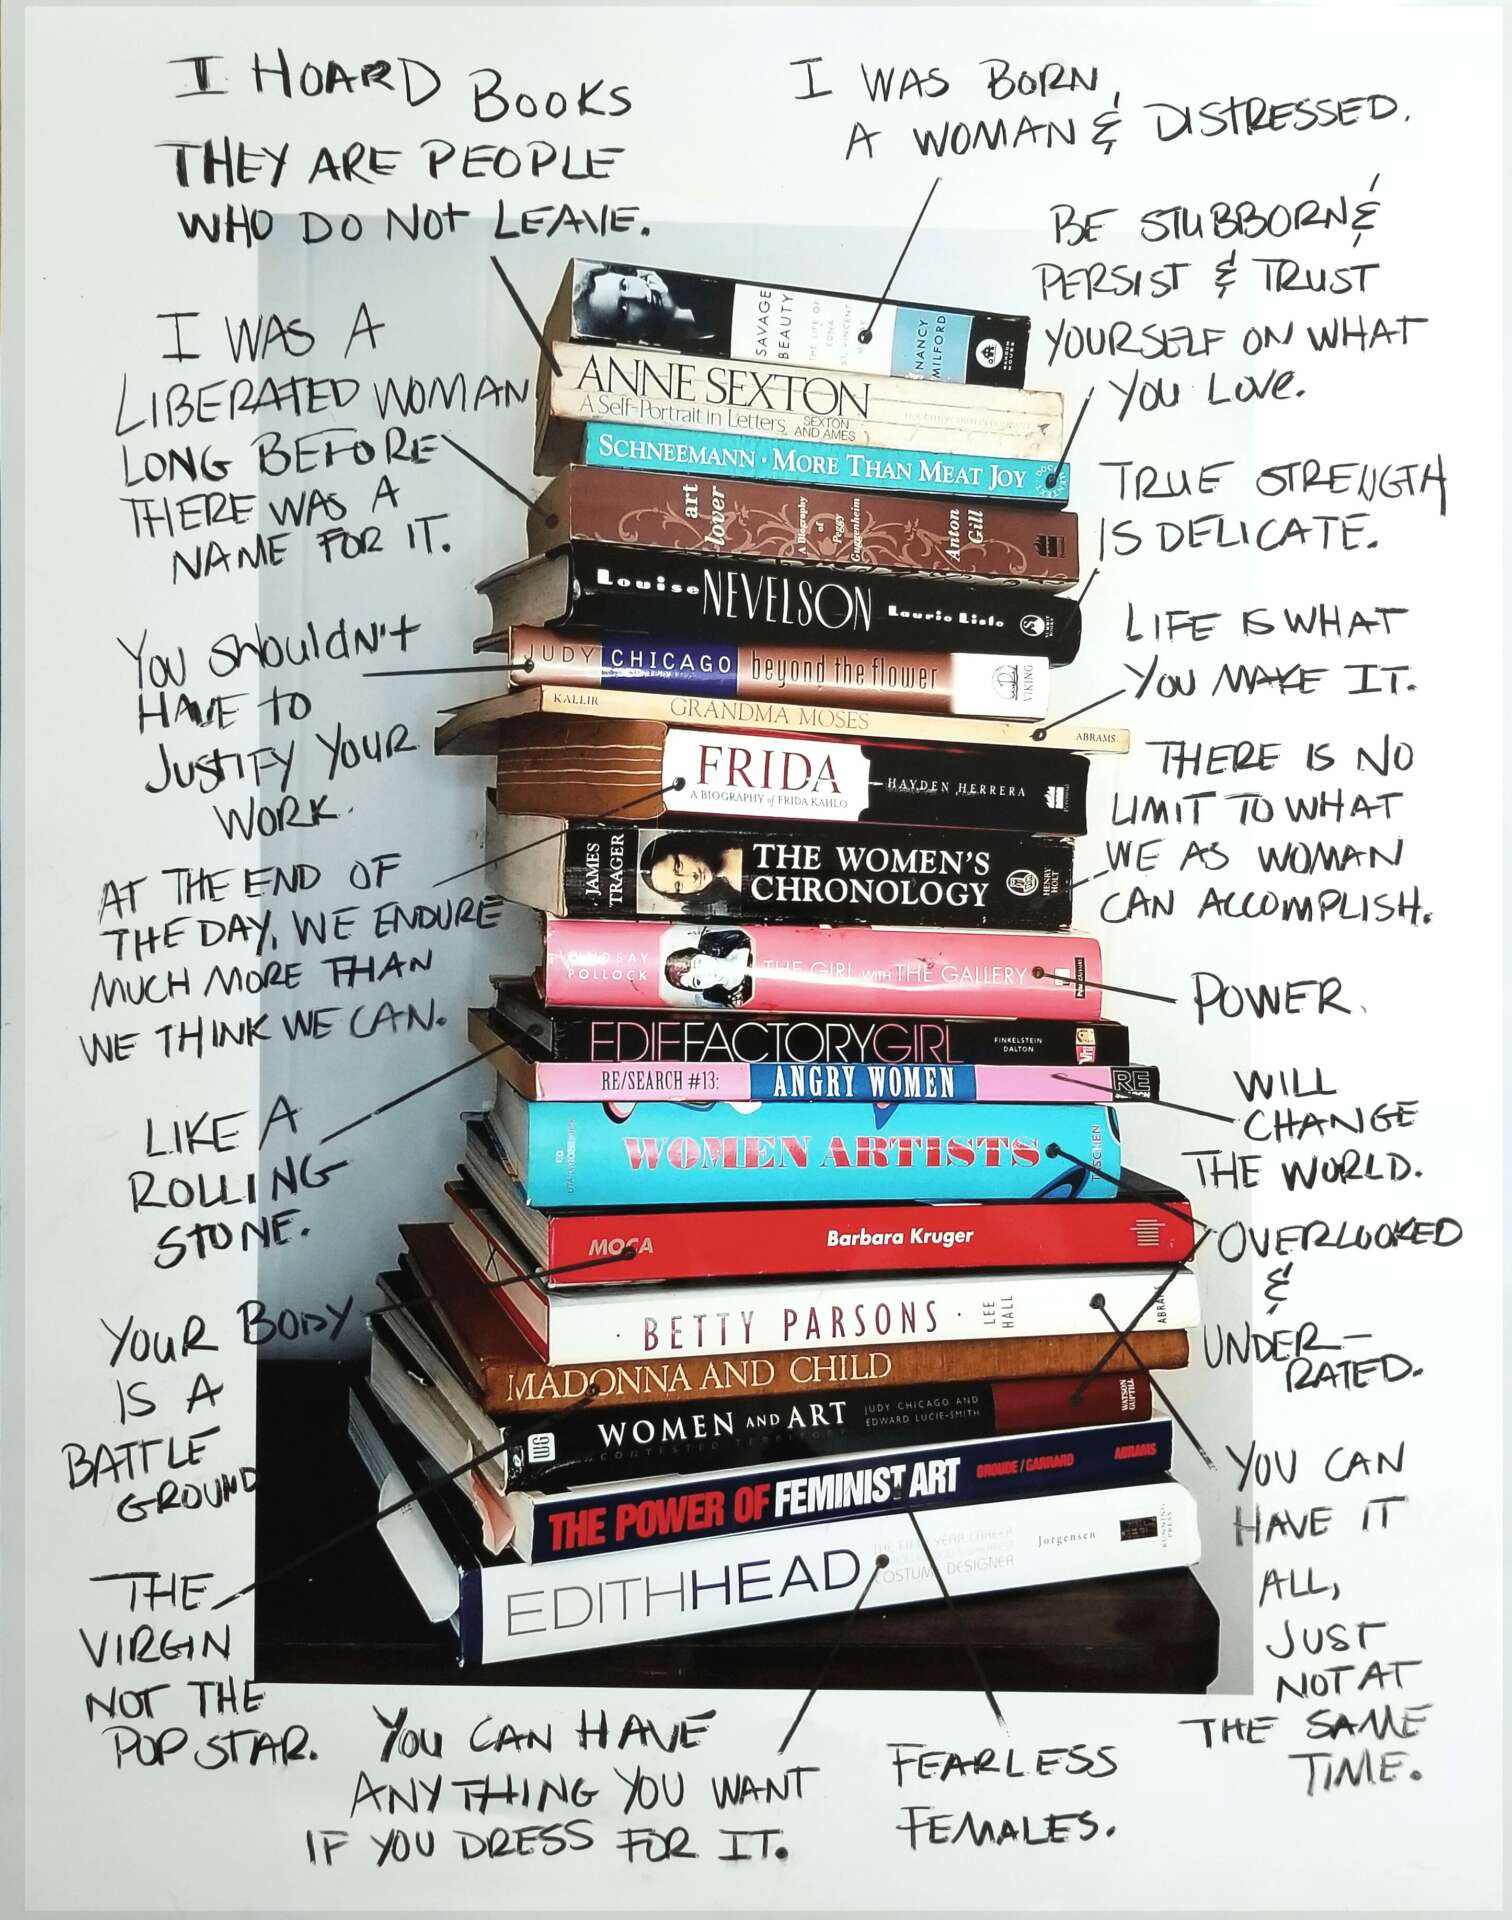 I HOARD BOOKS
THEY ARE PEOPLE
WHO DO NOT LEAVE.
I WAS BORN
A WOMAN & DISTRESSED.
BE STUBBORN &
PERSIST & TRUST
YOURSELF ON WHAT
YOU LOVE.
I WAS A
LIBERATED WOMAN
LONG BEFORE
THERE WAS A
NAME FOR IT.
TRUE STRENGTH
IS DELICATE.
YOU SHOULDN'T
HAVE TO
JUSTIFY YOUR
WORK.
LIFE IS WHAT
YOU MAKE IT.
THERE IS NO
LIMIT TO WHAT
WE AS WOMAN
CAN ACCOMPLISH.
AT THE END OF
THE DAY, WE ENDURE
MUCH MORE THAN
WE THINK WE CAN.
POWER.
LIKE A
ROLLING
STONE.
WILL
CHANGE
THE WORLD.
OVERLOOKED
&
UNDER-
RATED.
YOUR BODY
IS A
BATTLE
GROUND
YOU CAN
HAVE IT
ALL,
JUST
NOT AT
THE SAME
TIME.
THE
VIRGIN
NOT THE
POP STAR.
YOU CAN HAVE
ANYTHING YOU WANT
IF YOU DRESS FOR IT.
FEARLESS
FEMALES.
SAVAGE
BEAUTY
THE LIFE OF
EDNA
ST. VINCENT
NANCY
MILFORD
RANDOM
HOUSE
ANNE SEXTON
A Self-Portrait in Letters
SEXTON
AND AMES
SCHNEEMANN · MORE THAN MEAT JOY
art
lover
A Biography
of
Peggy
Guggenheim
Anton
Gill
Louise NEVELSON Laurie Lisle
SUMMIT
BOOKS
JUDY CHICAGO beyond the flower
VIKING
KALLIR GRANDMA MOSES ABRAMS
FRIDA
A BIOGRAPHY of FRIDA KAHLO
HAYDEN HERRERA
JAMES
TRAGER
THE WOMEN'S
CHRONOLOGY
HENRY
HOLT
LINDSAY
POLLOCK
THE GIRL WITH THE GALLERY
EDIEFACTORYGIRL
FINKELSTEIN
DALTON
RE/SEARCH #13: ANGRY WOMEN
RE
WOMEN ARTISTS
TASCHEN
MOCA Barbara Kruger
· BETTY PARSONS · LEE
HALL
MADONNA AND CHILD
WOMEN AND ART
CONTESTED TERRITORY
JUDY CHICAGO AND
EDWARD LUCIE-SMITH
WATSON
GUPTILL
WG
THE POWER OF FEMINIST ART
BROUDE/GARRARD ABRAMS
EDITHHEAD
THE FIFTY-YEAR CAREER
COSTUME DESIGNER
Jorgensen
RUNNING
PRESS